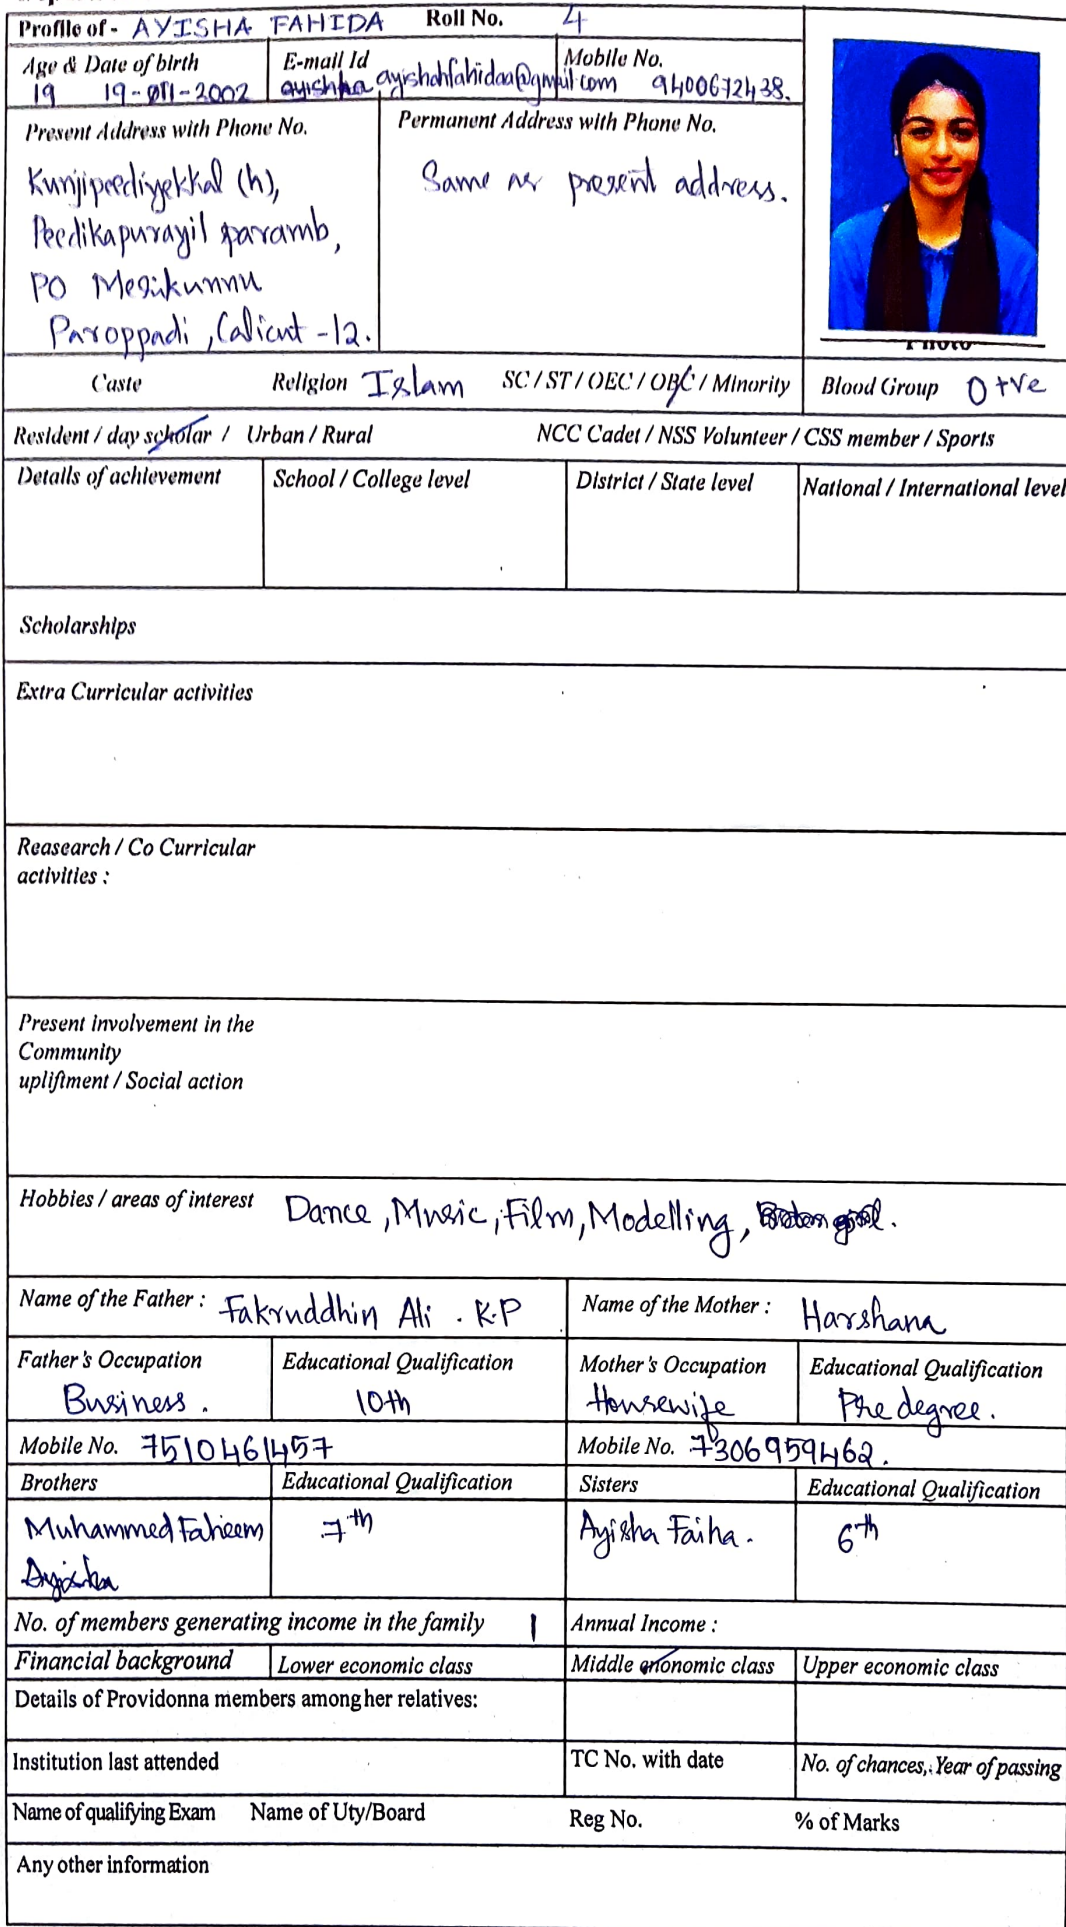 Profile of - AYISHA FAHIDA Roll No. 4
Age & Date of birth E-mail Id Mobile No.
19 ayishahfahidaa@gmail.com 9400672438.
Present Address with Phone No. Permanent Address with Phone No.
Kunjipeediyekkal (h), Same as present address.
Peedikapurayil paramb,
PO Merikunnu
Paroppadi, Calicut -12.
Photo
Caste Religion Islam SC / ST / OEC / OBC / Minority Blood Group O+ve
Resident / day scholar / Urban / Rural NCC Cadet / NSS Volunteer / CSS member / Sports
Details of achievement School / College level District / State level National / International level
Scholarships
Extra Curricular activities
Reasearch / Co Curricular
activities :
Present involvement in the
Community
upliftment / Social action
Hobbies / areas of interest Dance, Music, Film, Modelling,
Name of the Father : Fakruddhin Ali . K.P Name of the Mother : Harshana
Father's Occupation Educational Qualification Mother's Occupation Educational Qualification
Business. 10th Housewife Pre degree.
Mobile No. 7510461457 Mobile No. 7306959462.
Brothers Educational Qualification Sisters Educational Qualification
Muhammed Faheem 7th Ayisha Faiha. 6th
Ayisha
No. of members generating income in the family 1 Annual Income :
Financial background Lower economic class Middle enonomic class Upper economic class
Details of Providonna members among her relatives:
Institution last attended TC No. with date No. of chances, Year of passing
Name of qualifying Exam Name of Uty/Board Reg No. % of Marks
Any other information